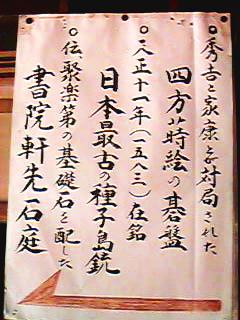 ○秀吉と家康と対局された
四方蒔絵の碁盤
○天正十一年(一五八三)在銘
日本最古の種子島銃
○伝、聚楽第の基礎石を配した
書院軒先石庭